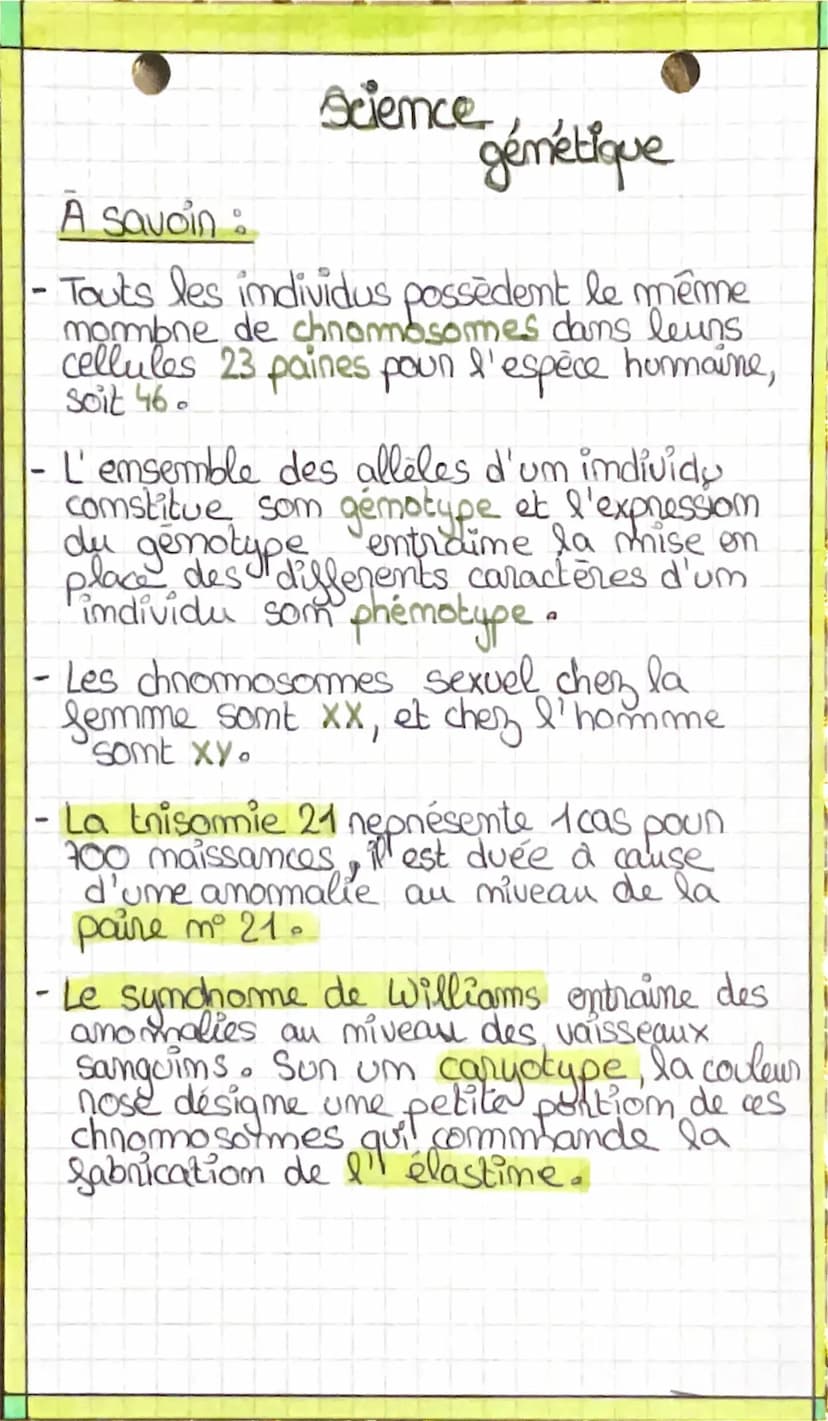 Science
génétique
À savoir :
- Touts les individus possèdent le même
nombre de chromosomes dans leurs
cellules 23 paires pour l'espèce humaine,
soit 46.
- L'ensemble des allèles d'un individu
constitue son génotype et l'expression
du génotype entraîne la mise en
place des differents caractères d'un
individu son phénotype.
- Les chromosomes sexuel chez la
femme sont XX, et chez l'homme
sont XY.
- La trisomie 21 représente 1 cas pour
700 naissances, il est duée à cause
d'une anomalie au niveau de la
paire n° 21.
- Le syndrome de Williams entraine des
anomalies au niveau des vaisseaux
sanguins. Sur um caryotype, la couleur
rose désigne une petite portion de ces
chromosomes qui commande la
fabrication de l'élastine.